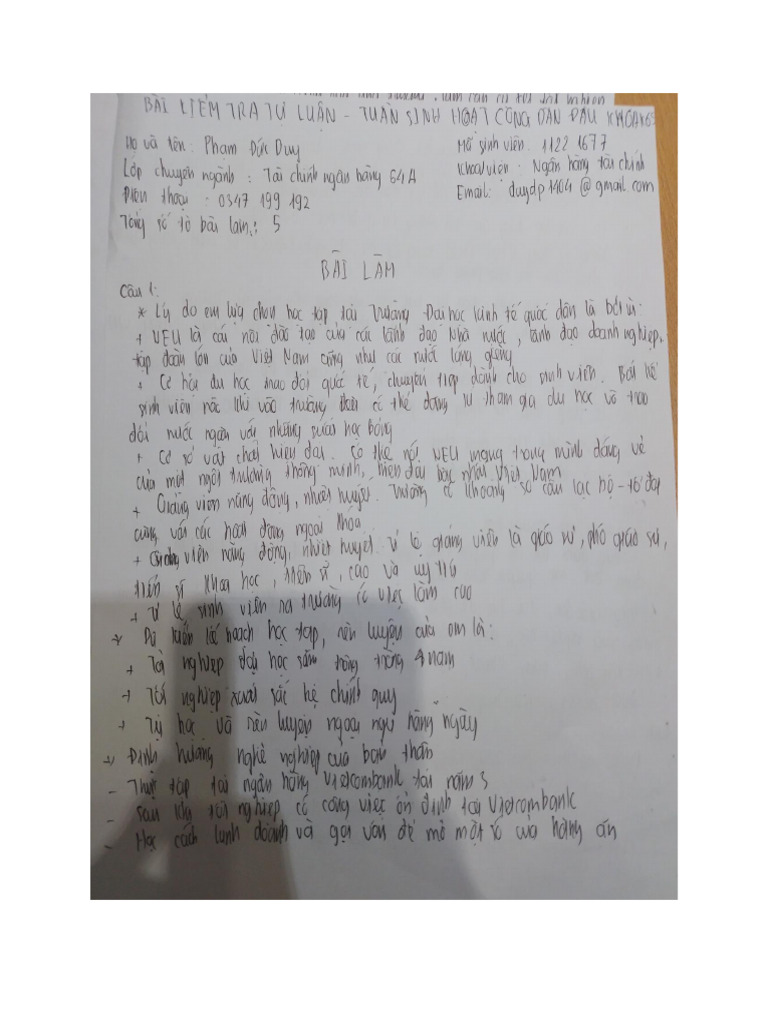 BÀI KIỂM TRA TỰ LUẬN - TUẦN SINH HOẠT CÔNG DÂN ĐẦU KHÓA K65
Họ và tên: Phạm Đức Duy
Mã sinh viên: 1122 1677
Lớp chuyên ngành: Tài chính ngân hàng 64A
Khoa/viện: Ngân hàng tài chính
Điện thoại: 0347 199 192
Email: duydp1404@gmail.com
Tổng số tờ bài làm: 5
BÀI LÀM
Câu 1:
* Lý do em lựa chọn học tập tại Trường Đại học kinh tế quốc dân là bởi vì:
+ NEU là cái nôi đào tạo của các lãnh đạo Nhà nước, lãnh đạo doanh nghiệp,
tập đoàn lớn của Việt Nam cũng như các nước láng giềng
+ Cơ hội du học trao đổi quốc tế, chuyển tiếp dành cho sinh viên. Bất kể
sinh viên nào khi vào trường đều có thể đăng kí tham gia du học và trao
đổi nước ngoài với những suất học bổng
+ Cơ sở vật chất hiện đại. Có thể nói NEU mang trong mình dáng vẻ
của một ngôi trường thông minh, hiện đại bậc nhất Việt Nam
+ Giảng viên năng động, nhiệt huyết. Trường có khoảng 50 câu lạc bộ - tổ đội
cùng với các hoạt động ngoại khóa
+ Giảng viên năng động, nhiệt huyết. Tỉ lệ giảng viên là giáo sư, phó giáo sư,
tiến sĩ khoa học, tiến sĩ, cao và uy tín
+ Tỉ lệ sinh viên ra trường có việc làm cao
* Dự kiến kế hoạch học tập, rèn luyện của em là:
+ Tốt nghiệp đại học sớm trong 4 năm
+ Tốt nghiệp xuất sắc hệ chính quy
+ Tự học và rèn luyện ngoại ngữ hằng ngày
* Định hướng nghề nghiệp của bản thân
- Thực tập tại ngân hàng Vietcombank tại năm 3
- Sau khi tốt nghiệp có công việc ổn định tại Vietcombank
- Học cách kinh doanh và gọi vốn để mở một số cửa hàng ăn